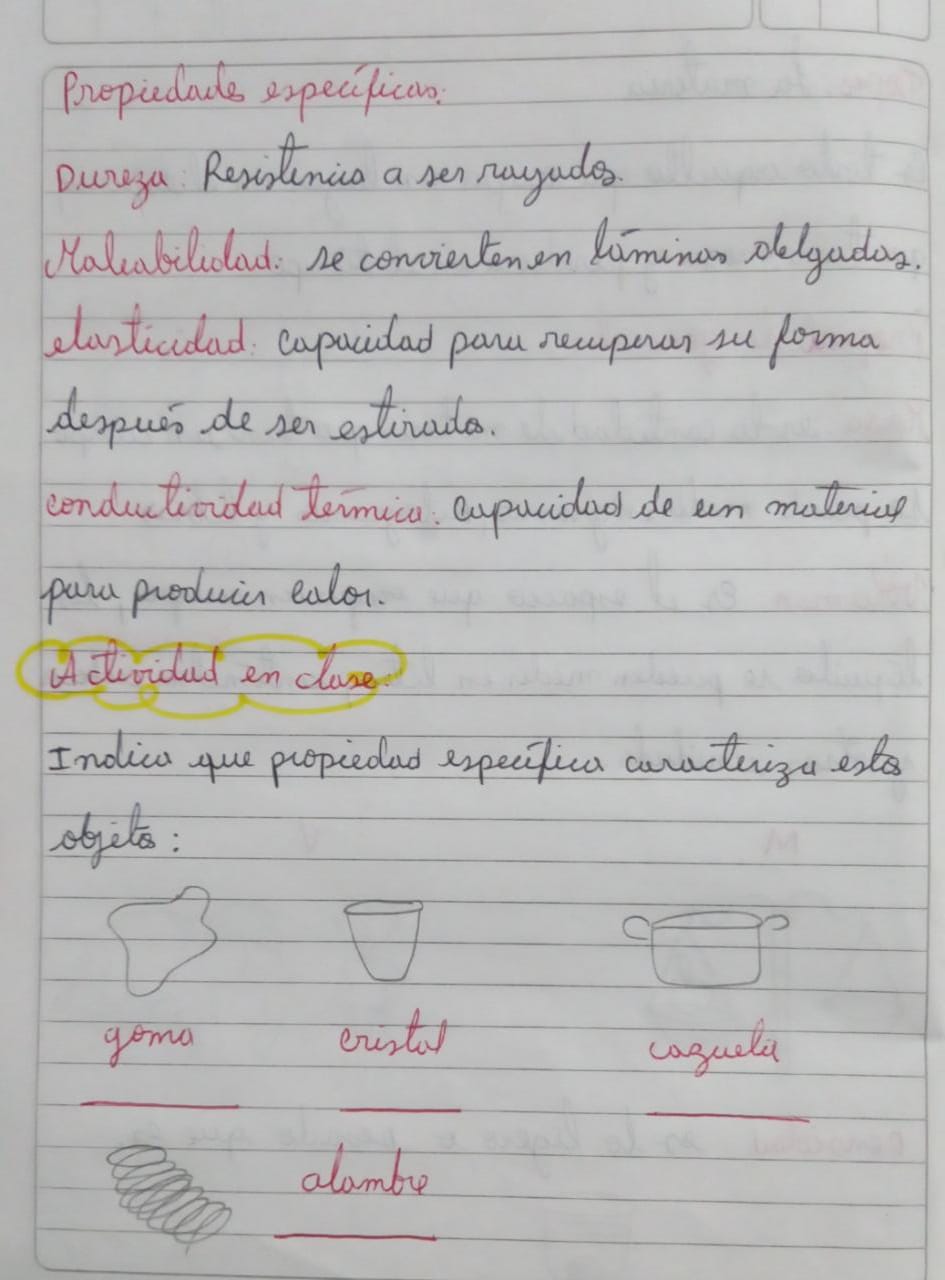 Propiedades específicas:
Dureza: Resistencia a ser rayados.
Maleabilidad: se convierten en láminas delgadas.
elasticidad: capacidad para recuperar su forma
después de ser estirado.
conductividad térmica: capacidad de un material
para producir calor.
Actividad en clase.
Indica que propiedad específica caracteriza estos
objetos:
goma cristal cazuela
alambre